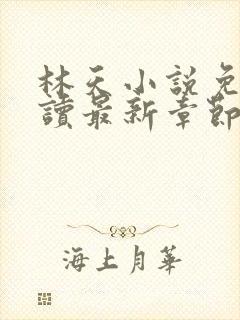 林天小説免
讀最新章節
海上月華